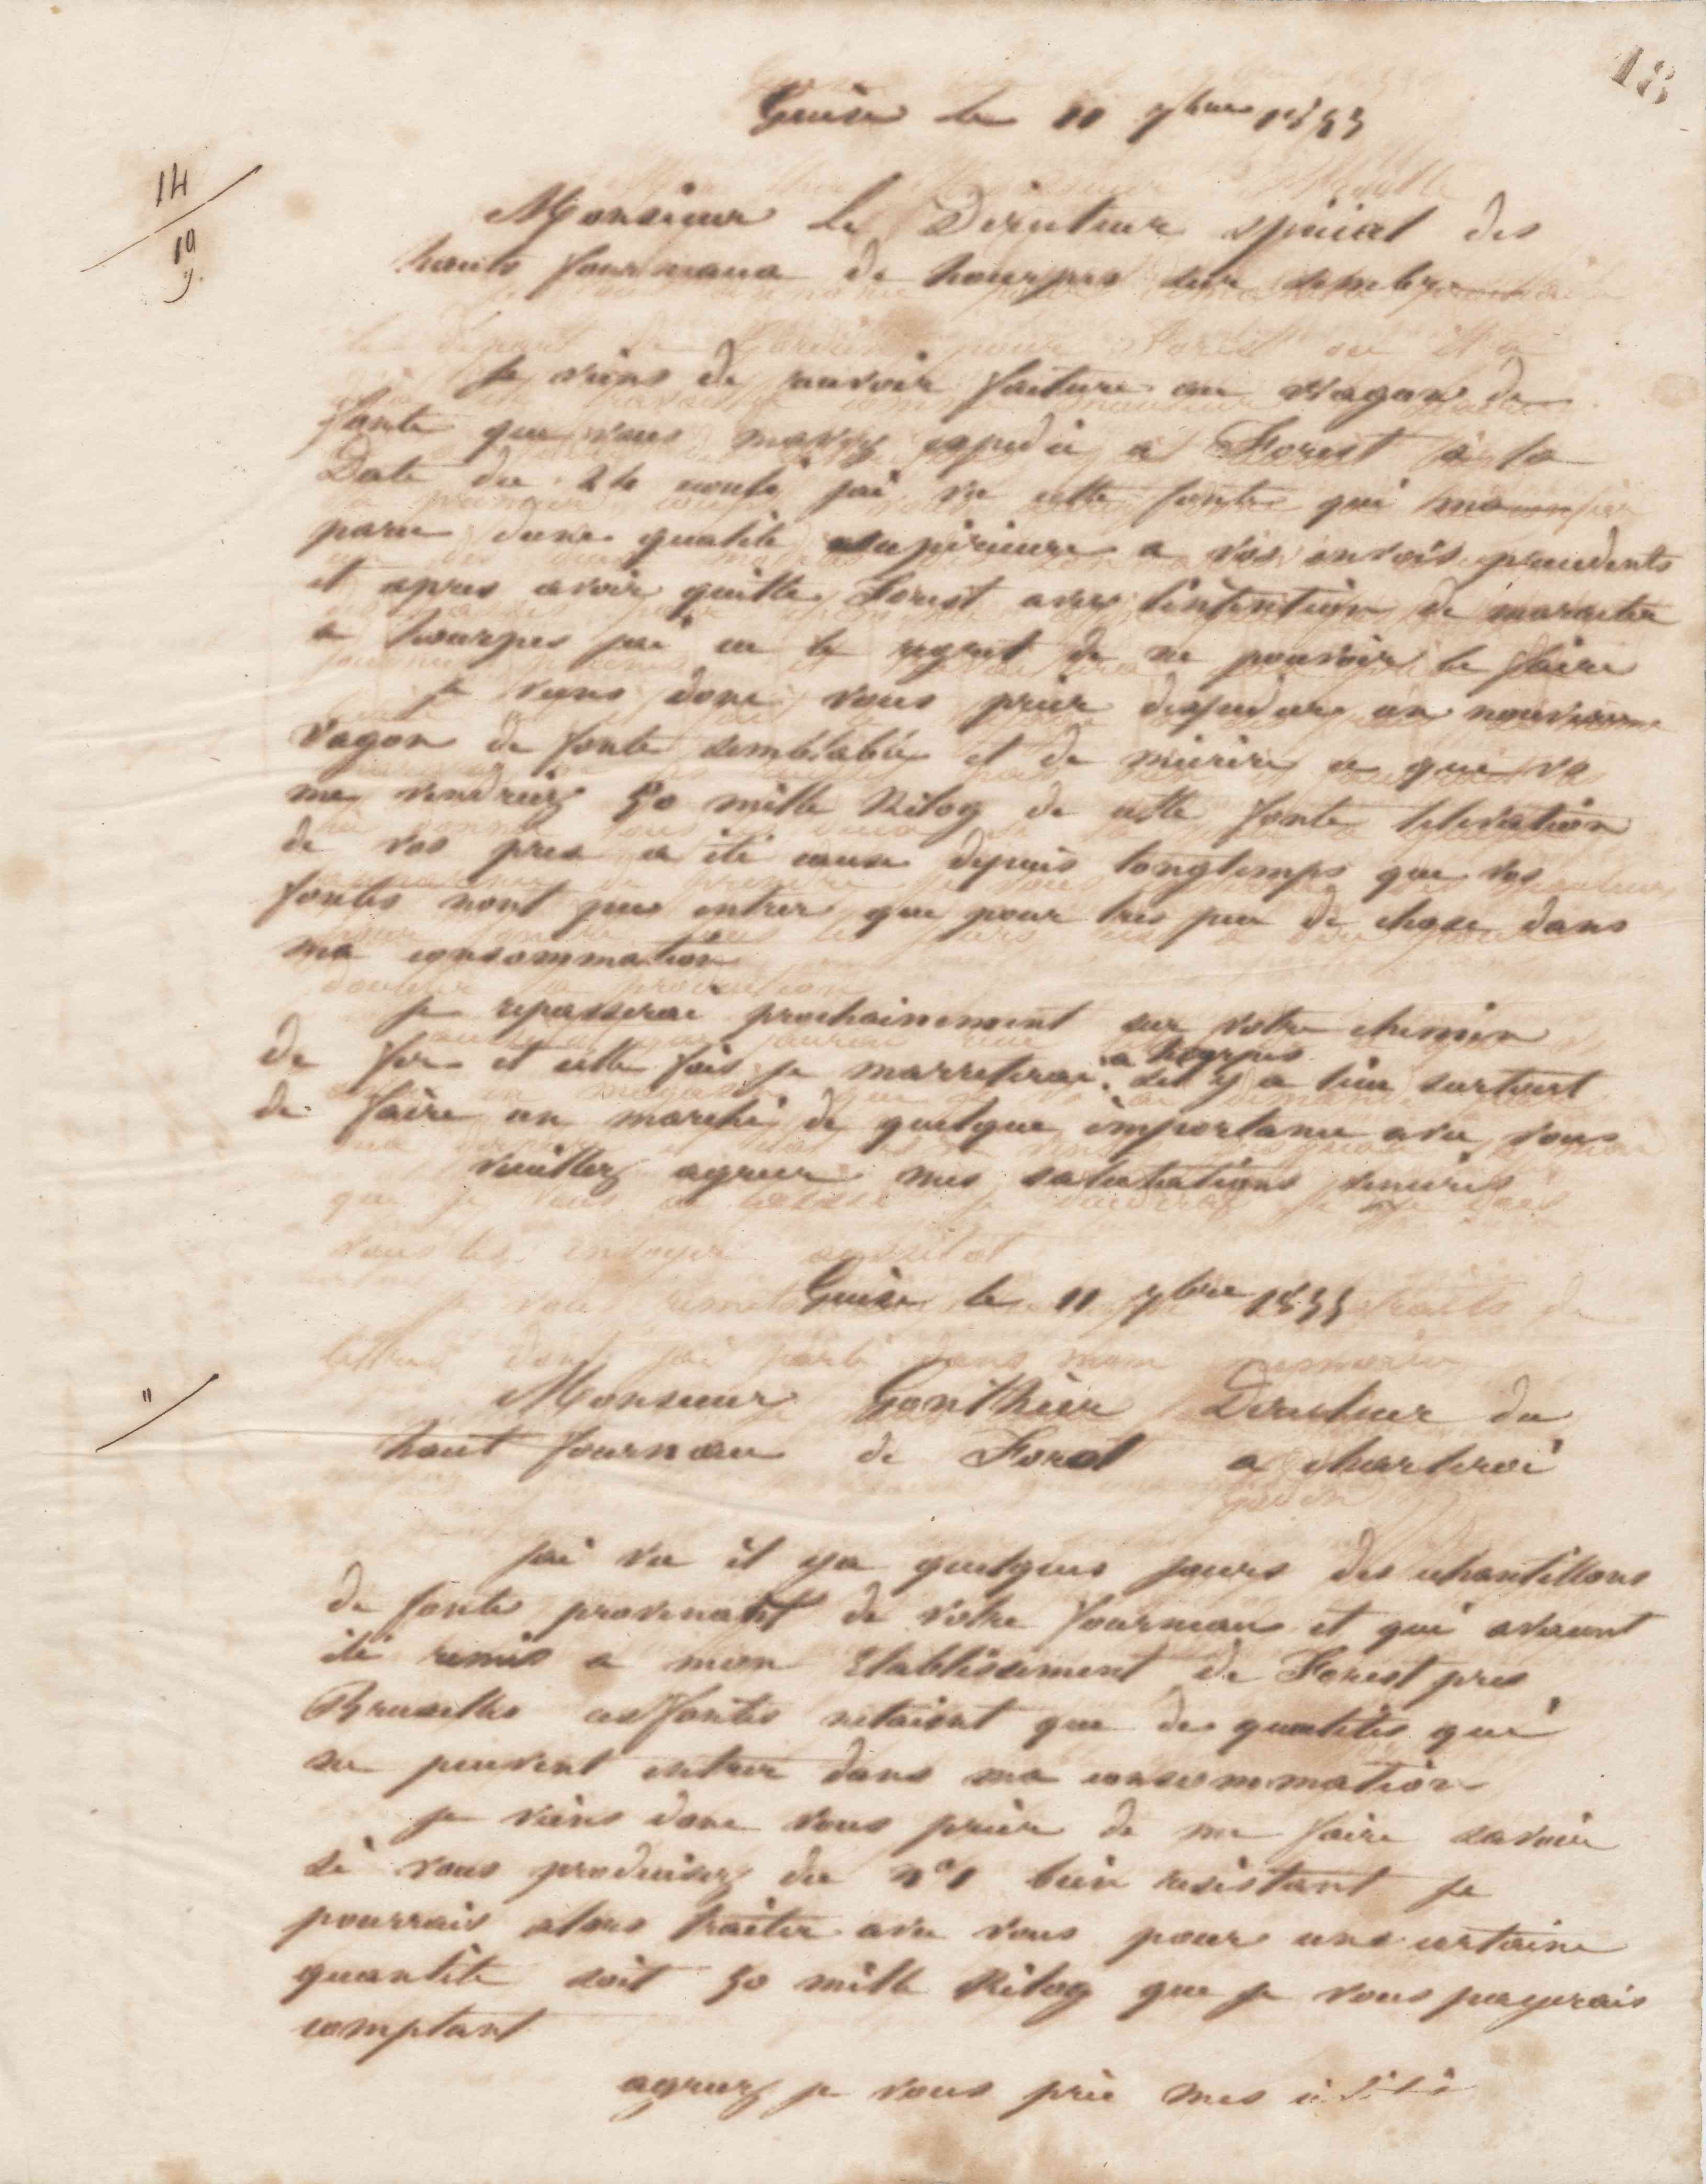 18
Guise le 11 7bre 1855
14
19
Monsieur Le Directeur spécial des
hauts fourneaux de hourpes sur sambre
Je viens de recevoir facture au vagon de
fonte que vous mavez expedié a Forest à la
Date du 24 août jai vu cette fonte qui ma
paru dune qualité supérieure a vos envois precedents
et apres avoir quitté Forest avec lintention de marreter
a hourpes jai eu le regret de ne pouvoir le faire
je viens donc vous prier dexpedier un nouveau
vagon de fonte semblable et de mécrire a quel
me vendriez 50 mille Kilog de cette fonte lelevation
de vos prix a été cause depuis longtemps que vos
fontes nont pu entrer que pour tres peu de chose dans
ma consommation
je repasserai prochainement sur votre chemin
de fer et cette fois je marreterai a hourpes sil y a lieu surtout
de faire un marché de quelque importance avec vous
veuillez agreer mes salutations sinceres
Guise le 11 7bre 1855
"
Monsieur Gonthier Directeur du
haut fourneau de Forest a charleroi
jai vu il ya quelques jours des echantillons
de fonte provenant de votre fourneau et qui avaient
été remis a mon Etablissement de Forest pres
Bruxelles ces fontes netaient que de qualités qui
ne peuvent entrer dans ma consommation
je viens donc vous prier de me faire savoir
si vous produisez du n° 1 bien resistant je
pourrais alors traiter avec vous pour une certaine
quantité soit 50 mille Kilog que je vous payerais
comptant
agreez je vous prie mes